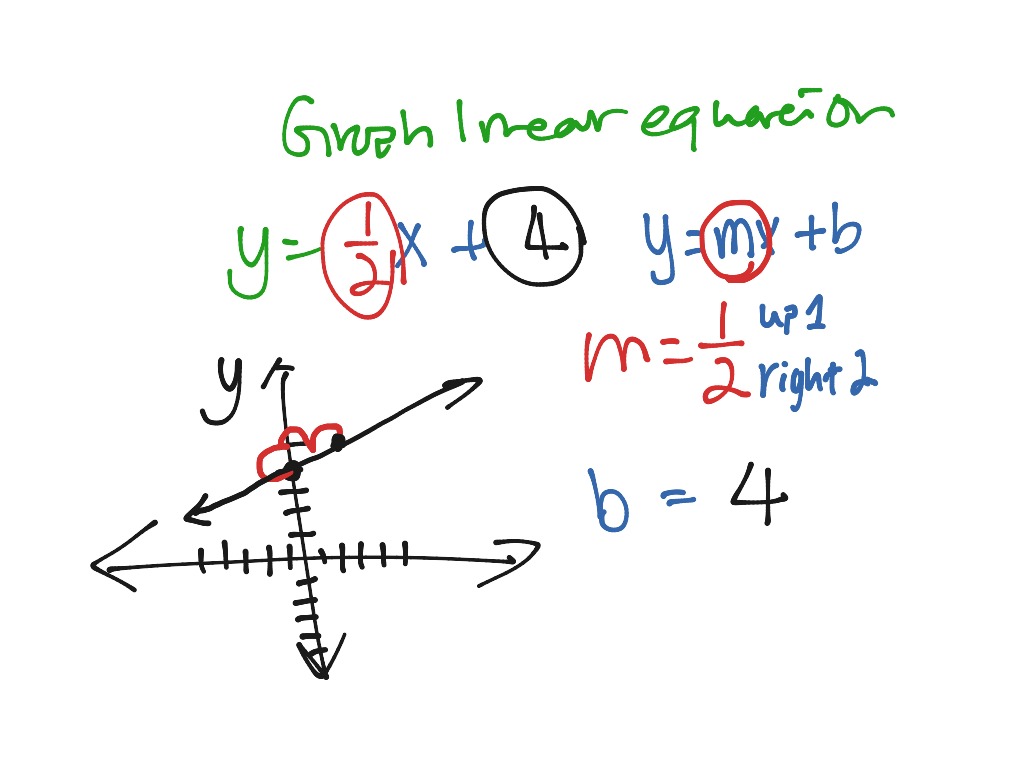 Graph linear equation
y = 1/2 x + 4
y = mx + b
m = 1/2 up 1 right 2
y
b = 4